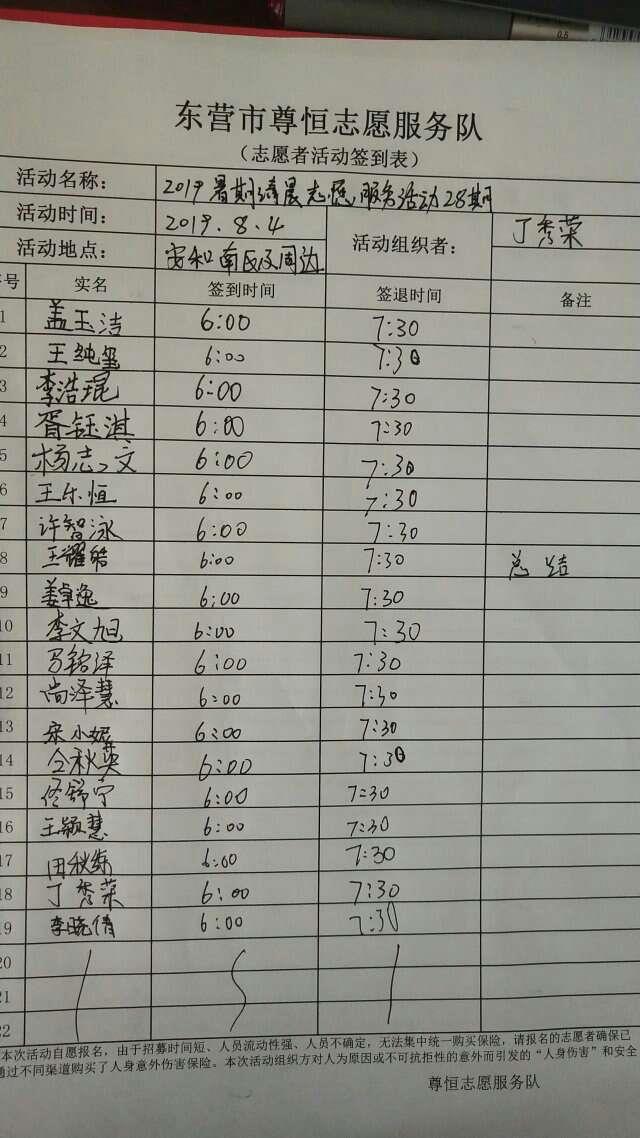 0.5
东营市尊恒志愿服务队
（志愿者活动签到表）
活动名称： 2019暑期清晨志愿服务活动28期
活动时间： 2019.8.4 活动组织者： 丁秀荣
活动地点： 安和南区及周边
序号 实名 签到时间 签退时间 备注
1 盖玉洁 6:00 7:30
2 王纯玺 6:00 7:30
3 李浩琨 6:00 7:30
4 胥钰淇 6:00 7:30
5 杨志文 6:00 7:30
6 王乐恒 6:00 7:30
7 许智泳 6:00 7:30
8 王耀 6:00 7:30 总结
9 姜卓逸 6:00 7:30
10 李文旭 6:00 7:30
11 6:00 7:30
12 尚泽慧 6:00 7:30
13 宋小妮 6:00 7:30
14 仝秋英 6:00 7:30
15 佟舒宁 6:00 7:30
16 王颖慧 6:00 7:30
17 田秋 6:00 7:30
18 丁秀荣 6:00 7:30
19 李晓倩 6:00 7:30
20
21
22
本次活动自愿报名，由于招募时间短、人员流动性强、人员不确定，无法集中统一购买保险，请报名的志愿者确保已
通过不同渠道购买了人身意外伤害保险。本次活动组织方对人为原因或不可抗拒性的意外而引发的“人身伤害”和安全
尊恒志愿服务队